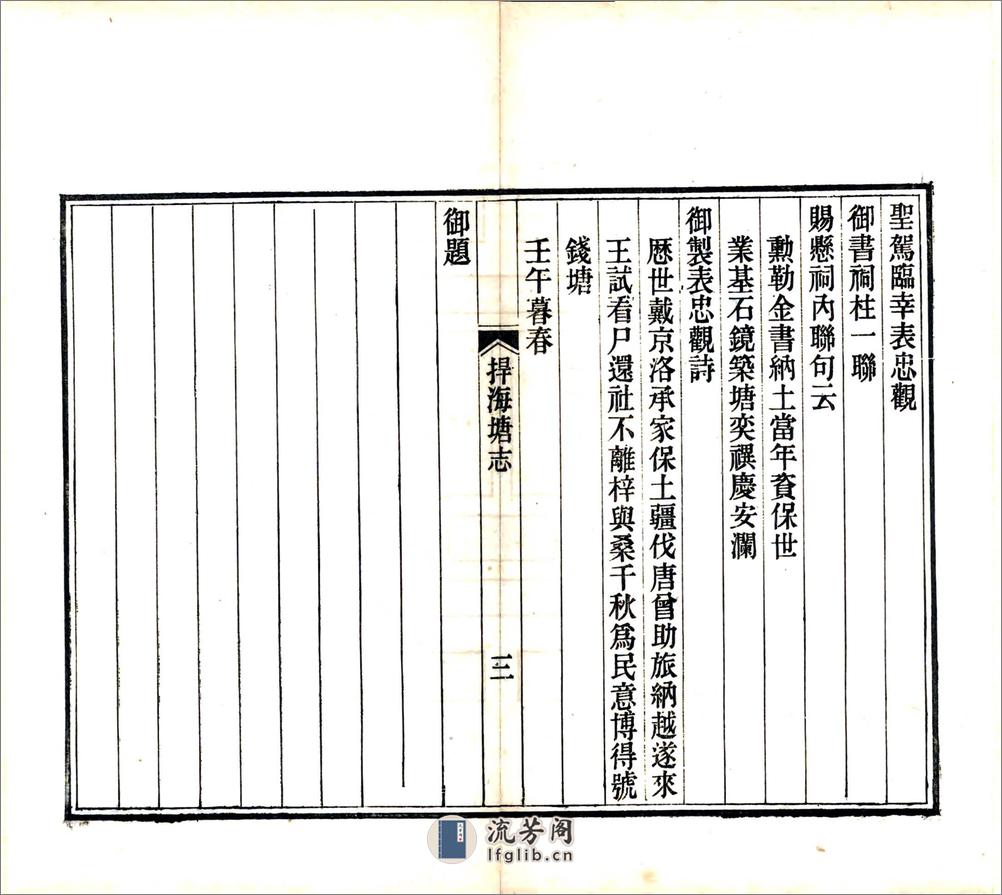 聖駕臨幸表忠觀
御書祠柱一聯
賜懸祠內聯句云
勳勒金書納土當年資保世
業基石鏡築塘奕禩慶安瀾
御製表忠觀詩
歷世戴京洛承家保土疆伐唐曾助旅納越遂來
王試看尸還社不離梓與桑千秋爲民意博得號
錢塘
壬午暮春
捍海塘志
三
御題
流芳阁
lfglib.cn